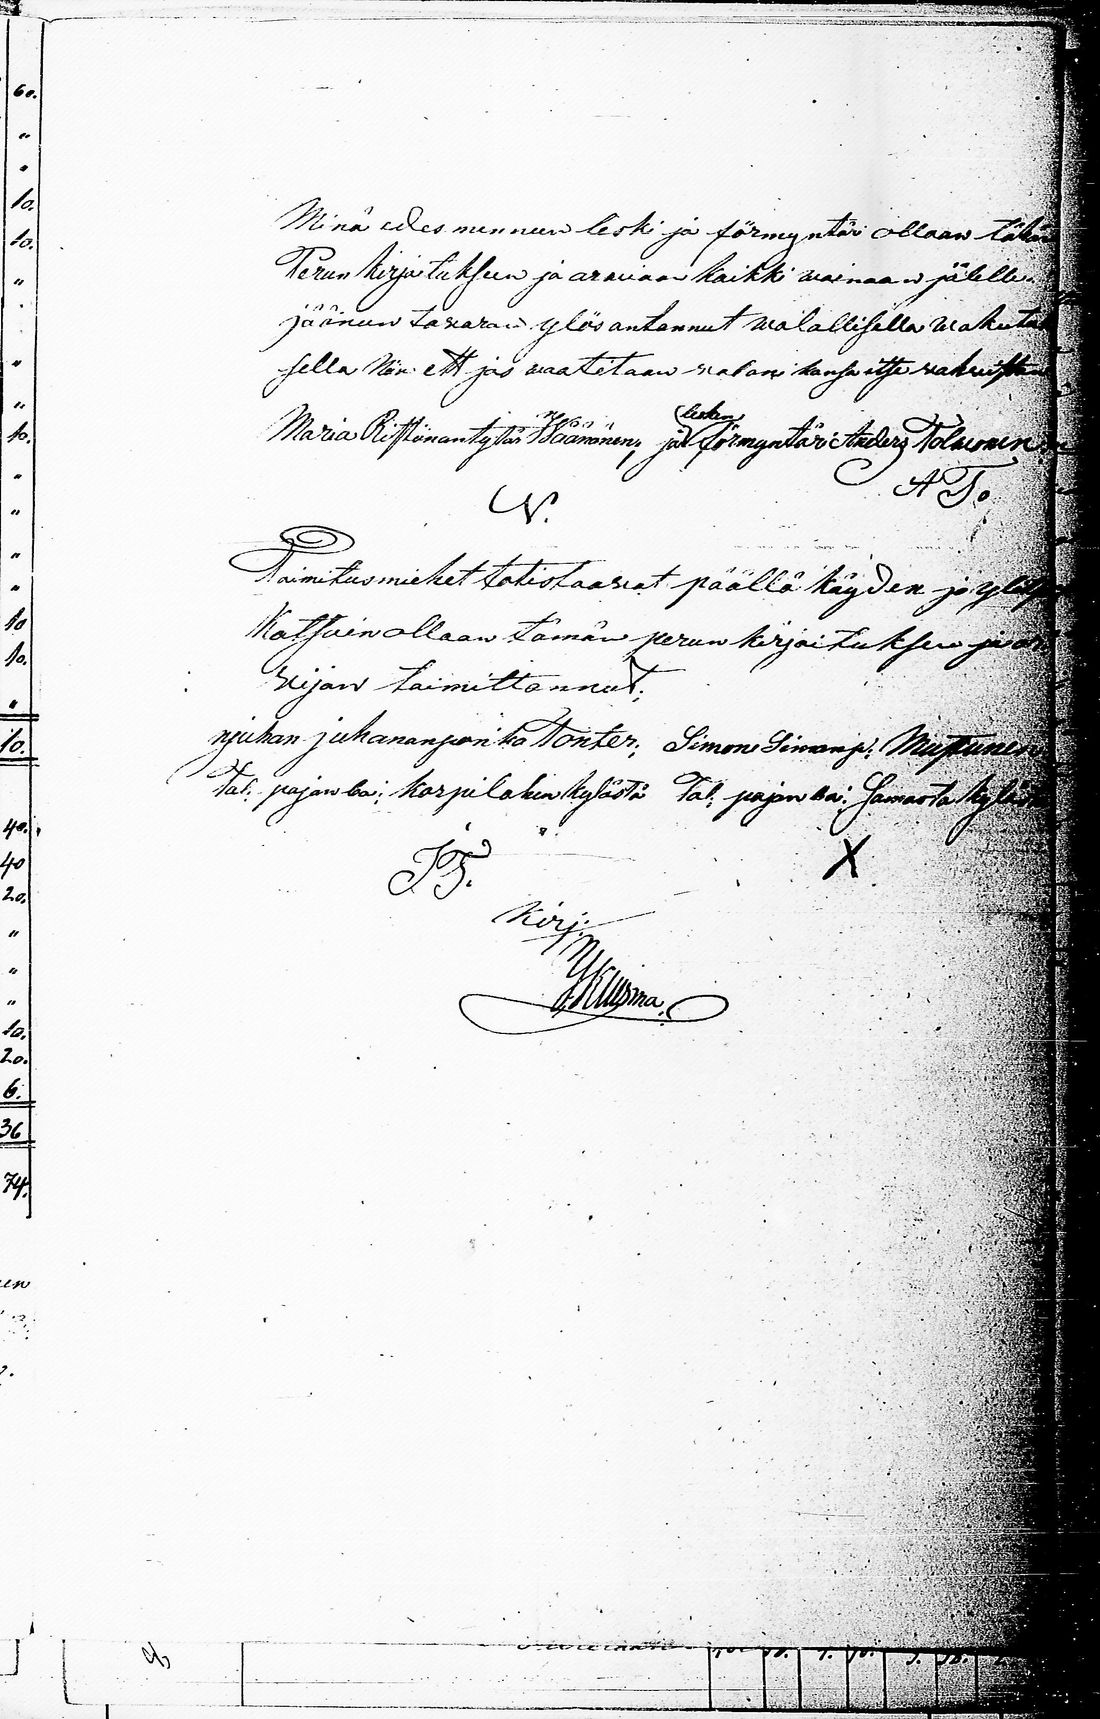 60.
"
"
10.
10.
"
"
"
10.
"
"
"
"
10
10.
"
10.
40.
40
20.
"
"
"
10.
20.
6.
36
74.
Minä edes mennun leski ja förmyntäri ollaan tähän
Perun kirjatuksen ja aravaan kaikki vainaan jälelle
jäänun tavaran ylös antannut valallisella vakuta
sella Nön ett jos vaatitaan valan kansa itse vahvistan
lesken
Maria Ristonantytär Väänänen; ja förmyntäri Anders Tolvonen
N. A T.
Toimitusmiehet totistaavat päällä käyden ja ylös
Katsoin ollaan tämän perun kirjoituksen ja ar
vijan toimittannut;
njuhan juhananpoika Tonter; Simon Simonp: Mustunen
Tal: pojan ba: korpilahen kylästä Tal: pojan ba: Samasta kyläs
J T. X
Kirj:
Y Kuosma.